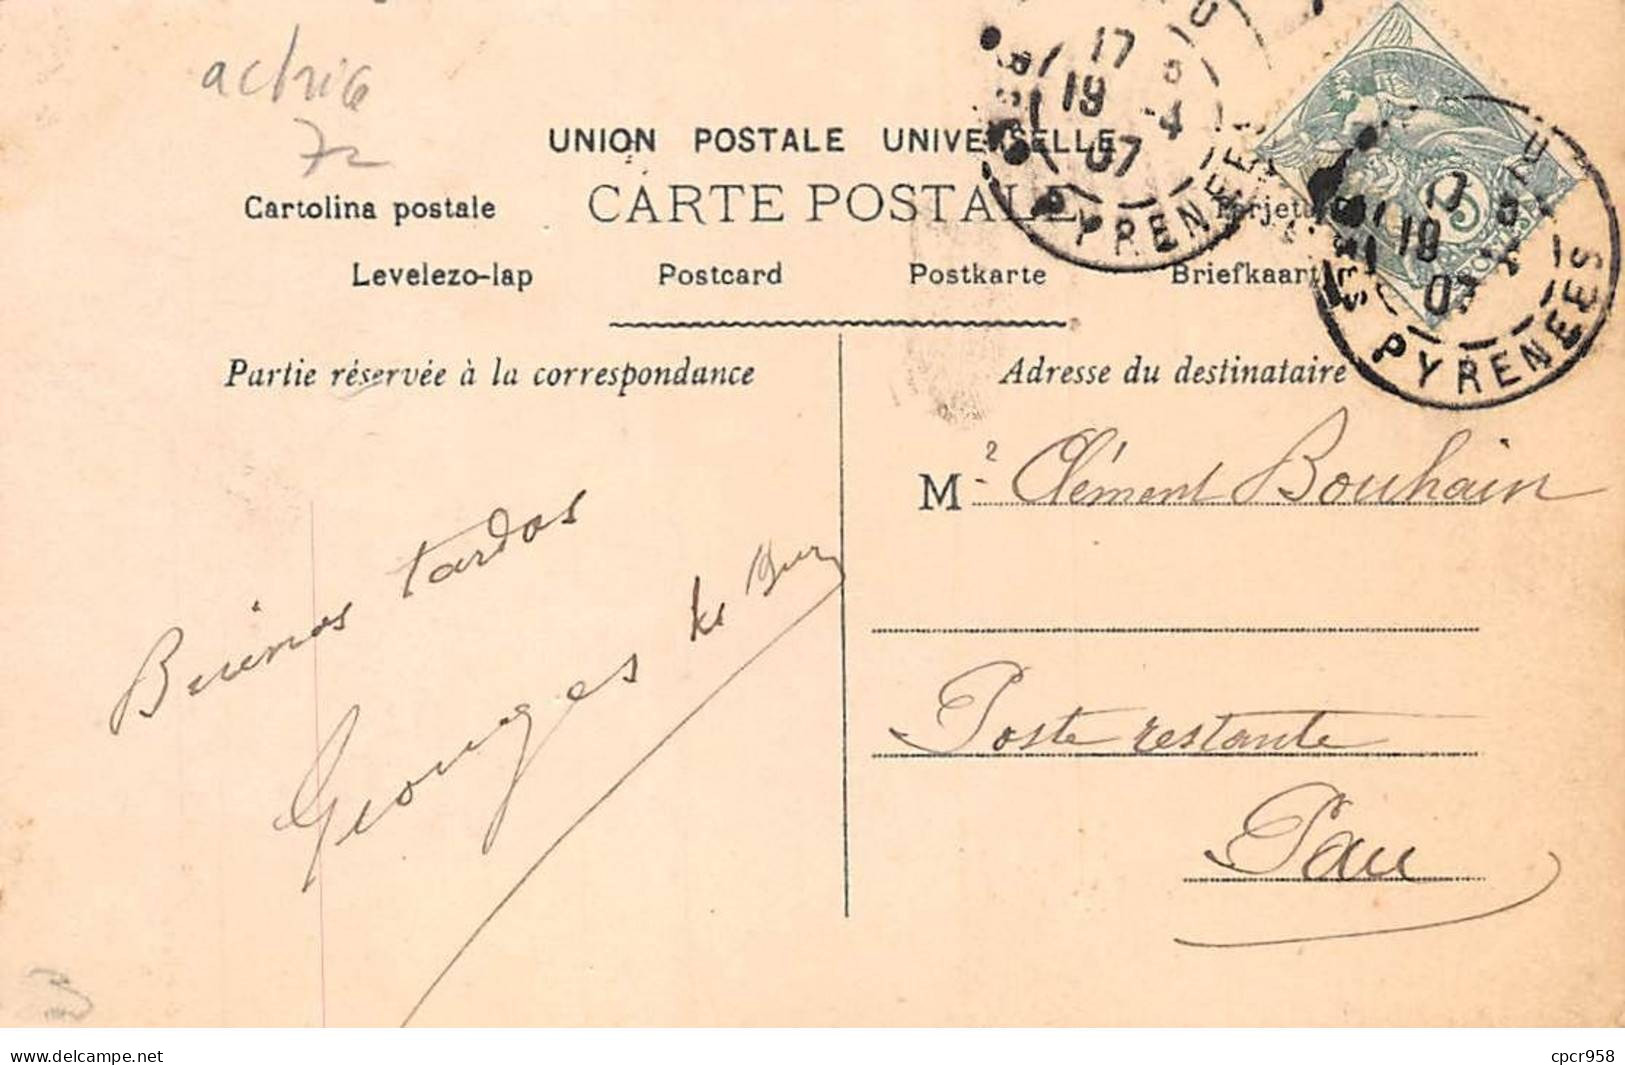 actrice
72
UNION POSTALE UNIVERSELLE
CARTE POSTALE
Cartolina postale
Levelezo-lap
Postcard
Postkarte
Briefkaart
17
19 -4
07
PYRENEES
17
19
07
PYRENEES
5
Partie réservée à la correspondance
Adresse du destinataire
M Clément Bouhain
Poste restante
Pau
Buenos tardos
Georges
delcampe.net
cpcr958